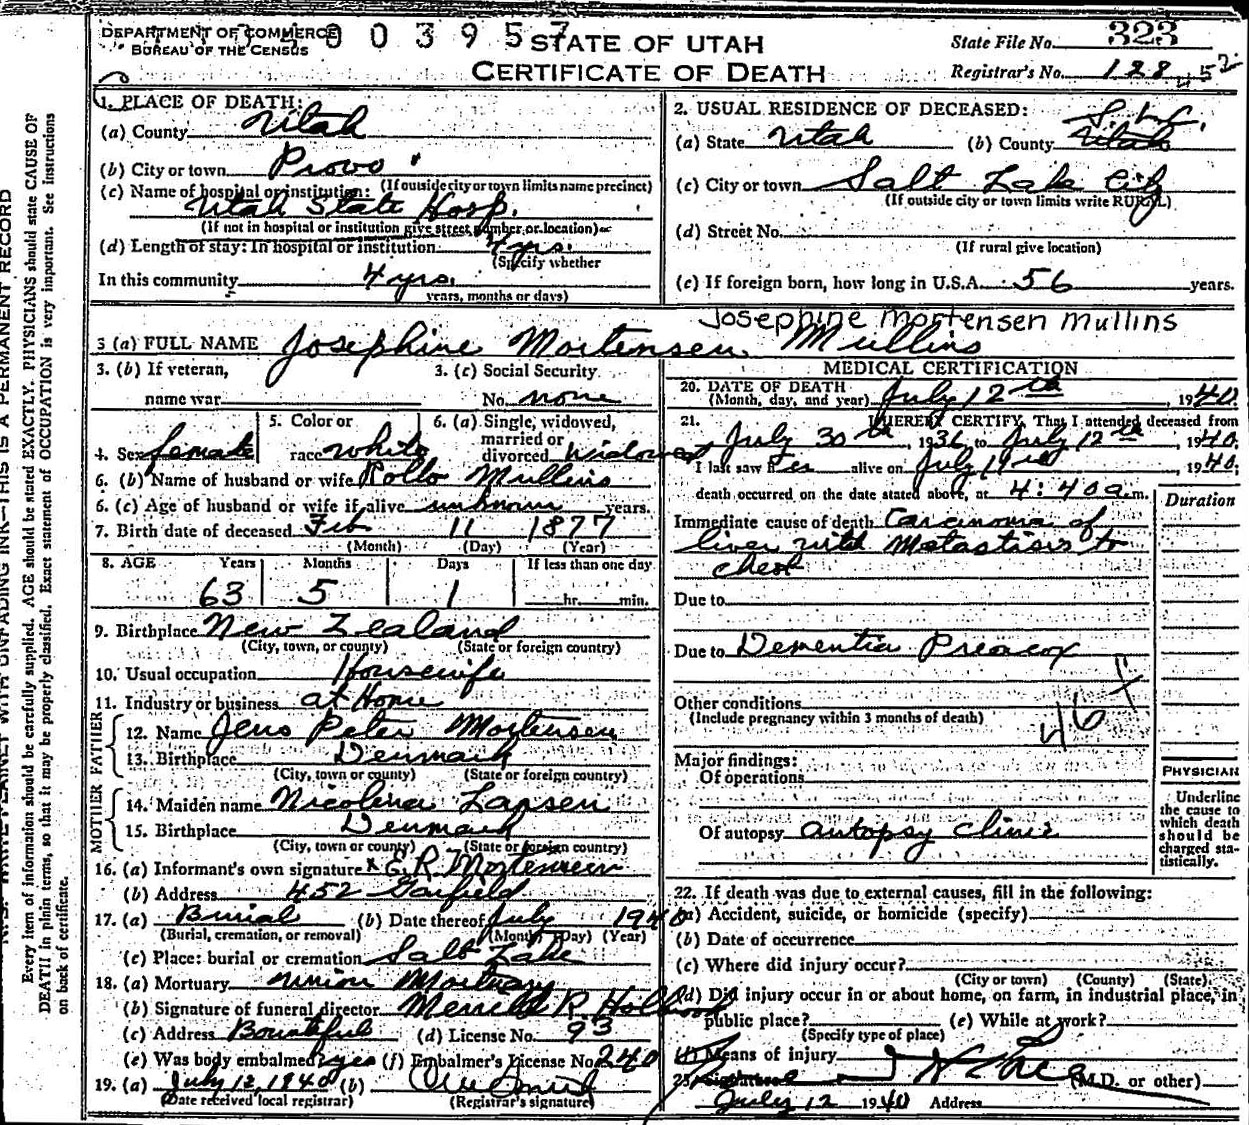 DEPARTMENT OF COMMERCE
BUREAU OF THE CENSUS
0 0 3 9 5 7
STATE OF UTAH
CERTIFICATE OF DEATH
State File No. 323
Registrar's No. 188
52
1. PLACE OF DEATH:
(a) County Utah
(b) City or town Provo
(If outside city or town limits name precinct)
(c) Name of hospital or institution:
Utah State Hosp.
(If not in hospital or institution give street number or location)
(d) Length of stay: In hospital or institution 4 yrs.
(Specify whether
In this community 4 yrs.
years, months or days)
2. USUAL RESIDENCE OF DECEASED:
S.L.C.
(a) State Utah (b) County Utah
(c) City or town Salt Lake City
(If outside city or town limits write RURAL)
(d) Street No.
(If rural give location)
(e) If foreign born, how long in U.S.A. 56 years.
Josephine Mortensen Mullins
3 (a) FULL NAME Josephine Mortensen Mullins
3. (b) If veteran,
name war
3. (c) Social Security
No. none
4. Sex female
5. Color or
race white
6. (a) Single, widowed,
married or
divorced widowed
6. (b) Name of husband or wife Rollo Mullins
6. (c) Age of husband or wife if alive unknown years.
7. Birth date of deceased Feb 11 1877
(Month) (Day) (Year)
8. AGE Years Months Days If less than one day
63 5 1 hr. min.
9. Birthplace New Zealand
(City, town, or county) (State or foreign country)
10. Usual occupation Housewife
11. Industry or business at Home
FATHER
12. Name Jens Peter Mortensen
13. Birthplace Denmark
(City, town or county) (State or foreign country)
MOTHER
14. Maiden name Nicolina Lapsen
15. Birthplace Denmark
(City, town or county) (State or foreign country)
16. (a) Informant's own signature x E. R. Mortensen
(b) Address 452 Garfield
17. (a) Burial (b) Date thereof July 1940
(Burial, cremation, or removal) (Month) (Day) (Year)
(c) Place: burial or cremation Salt Lake
18. (a) Mortuary Union Mortuary
(b) Signature of funeral director Merrill R. Holbrook
(c) Address Bountiful (d) License No. 93
(e) Was body embalmed? yes (f) Embalmer's License No. 240
19. (a) July 12, 1940 (b)
(Date received local registrar) (Registrar's signature)
MEDICAL CERTIFICATION
20. DATE OF DEATH
(Month, day, and year) July 12th, 1940.
21. I HEREBY CERTIFY, That I attended deceased from
July 30th, 1936, to July 12th, 1940.
I last saw her alive on July 11th, 1940;
death occurred on the date stated above, at 4:40 a.m.
Duration
Immediate cause of death Carcinoma of
liver with Metastisis to
chest
Due to
Due to Dementia Preacox
Other conditions
(Include pregnancy within 3 months of death)
46
Major findings:
Of operations
Of autopsy autopsy clinic
PHYSICIAN
Underline
the cause to
which death
should be
charged sta-
tistically.
22. If death was due to external causes, fill in the following:
(a) Accident, suicide, or homicide (specify)
(b) Date of occurrence
(c) Where did injury occur?
(City or town) (County) (State)
(d) Did injury occur in or about home, on farm, in industrial place, in
public place? (e) While at work?
(Specify type of place)
(f) Means of injury
23. Signature (M.D. or other)
July 12 1940 Address
THIS IS A PERMANENT RECORD
Every item of information should be carefully supplied. AGE should be stated EXACTLY. PHYSICIANS should state CAUSE OF
DEATH in plain terms, so that it may be properly classified. Exact statement of OCCUPATION is very important. See Instructions
on back of certificate.